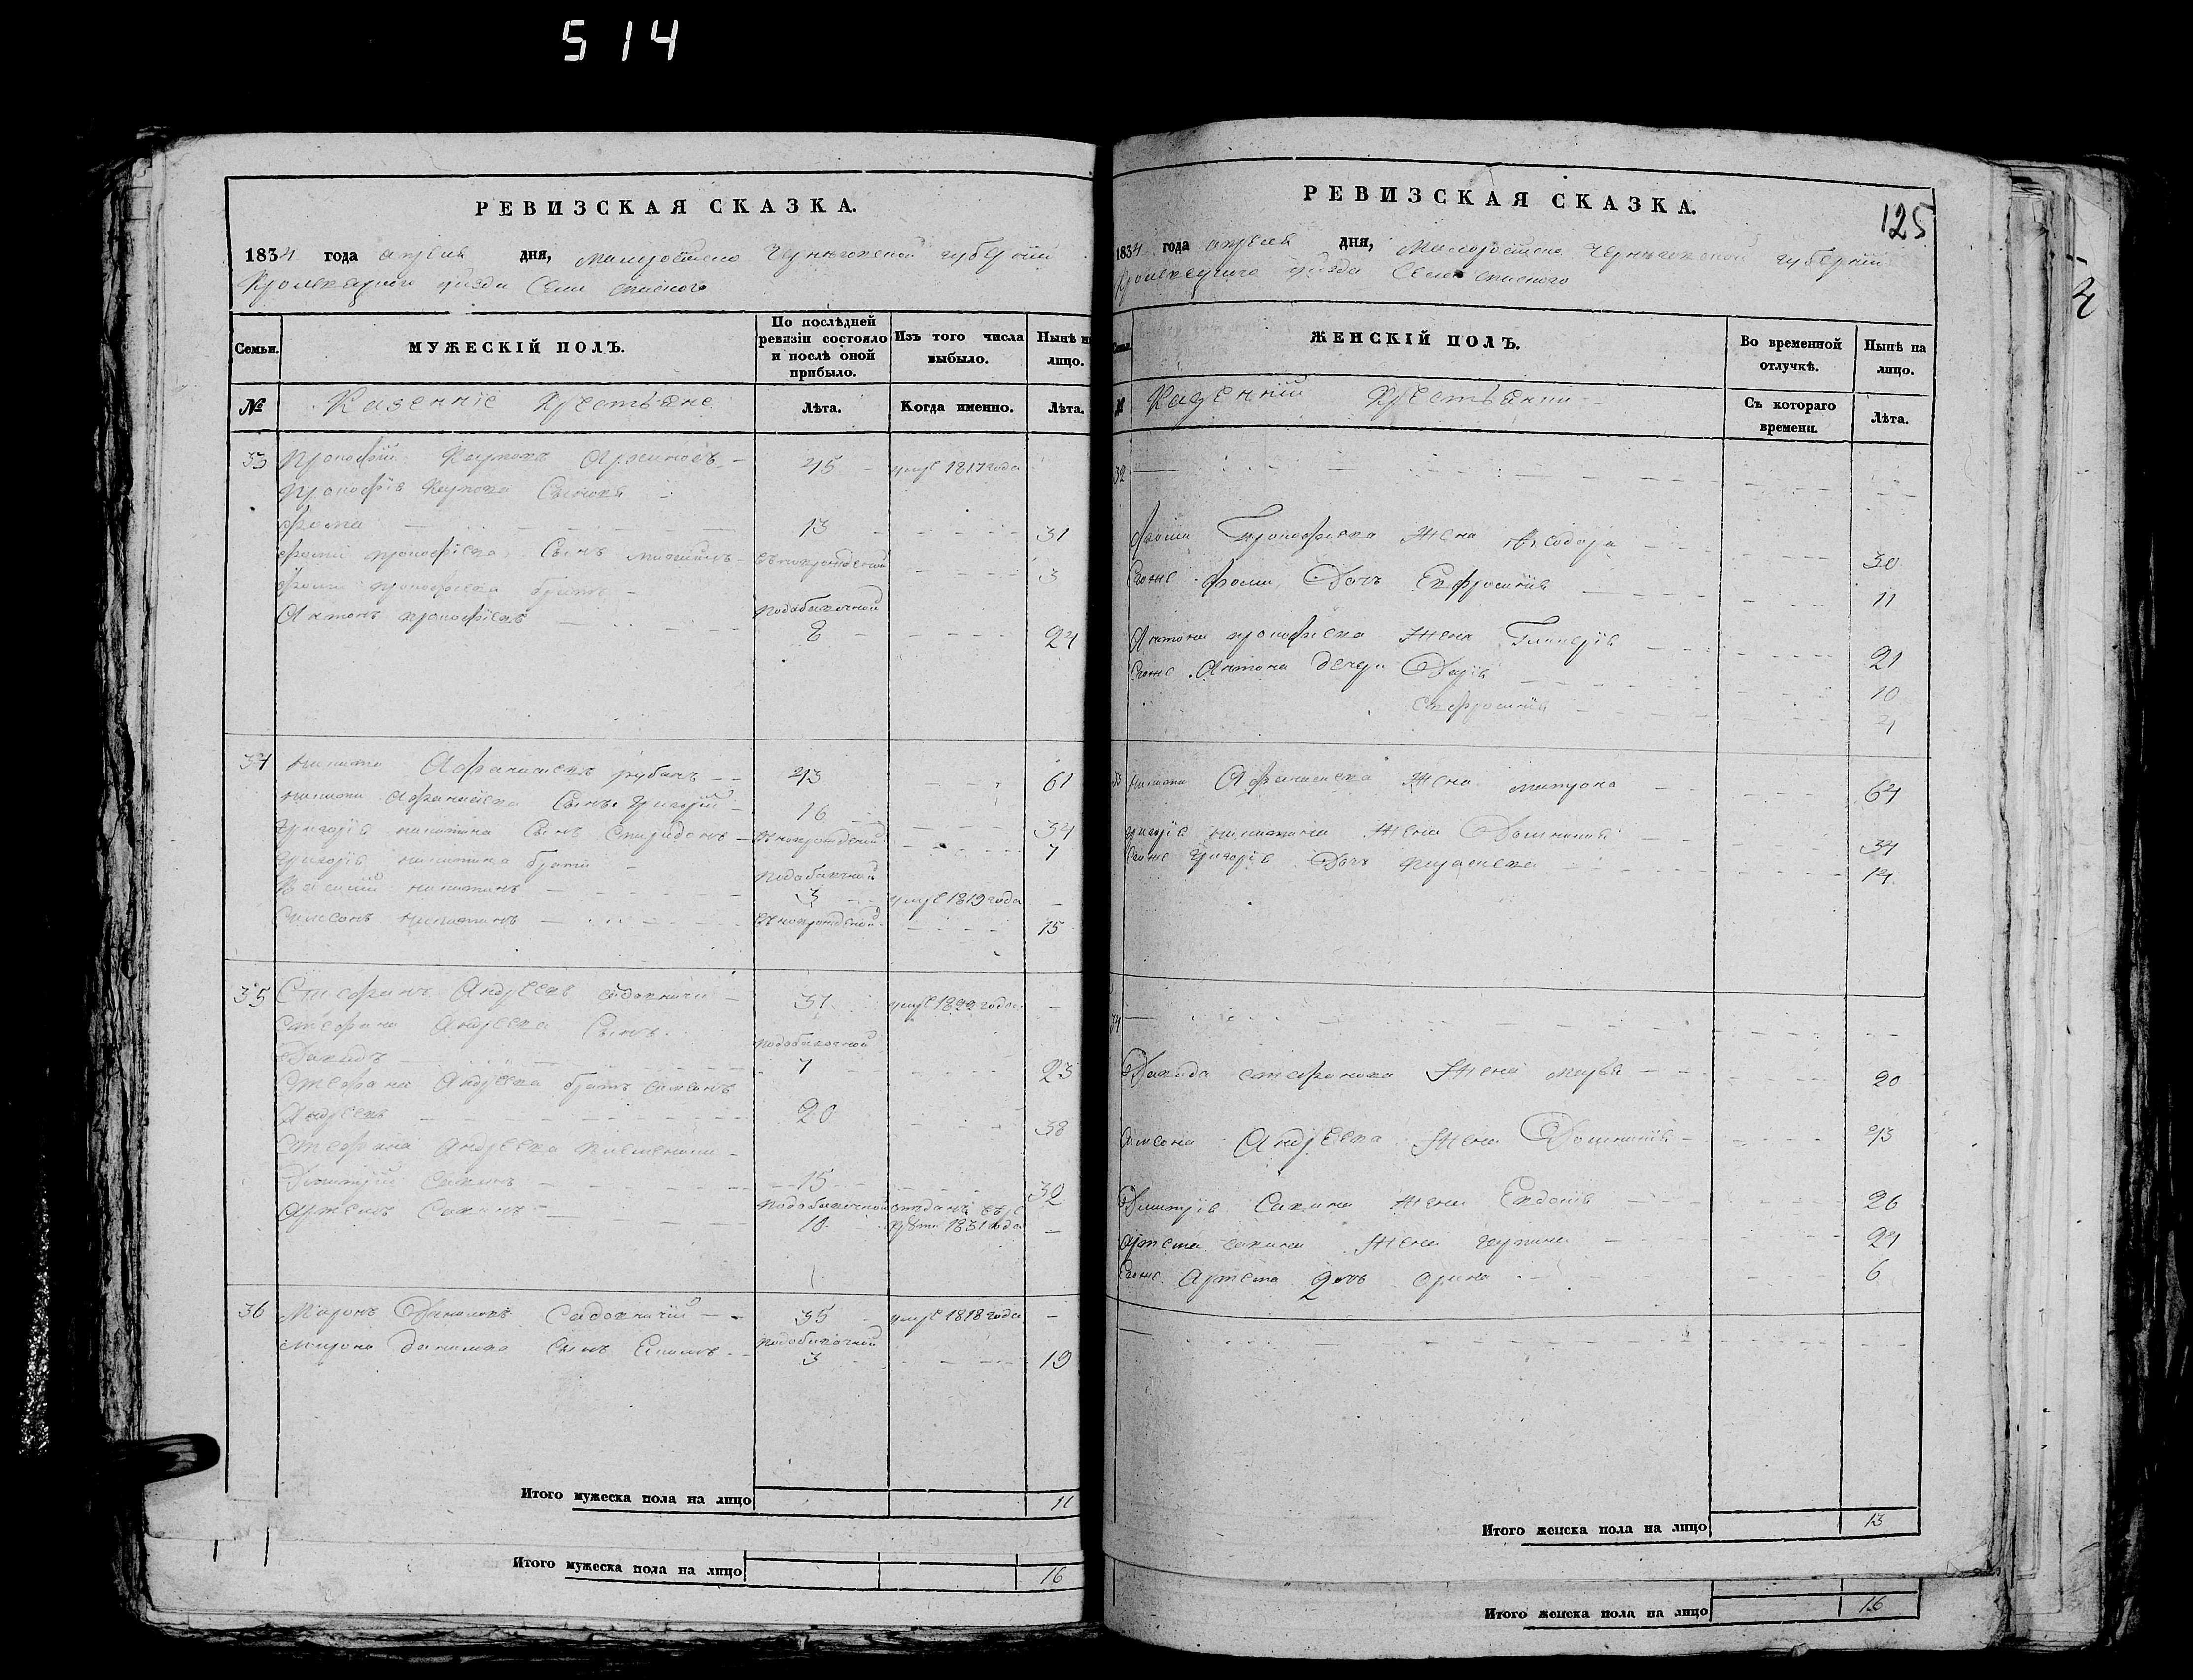 514
РЕВИЗСКАЯ СКАЗКА.
1834 года апреля дня, Малороссiйско Черниговской губернiи
Кролевецкого уезда Села Спаского
Семьи.
МУЖЕСКІЙ ПОЛЪ.
По послѣдней ревизіи состояло и послѣ оной прибыло.
Изъ того числа выбыло.
Нынѣ на лицо.
№
Казеннiе Крестьяне
Лѣта.
Когда именно.
Лѣта.
33 Прокофiй Карповъ 45 умре 1817 года
Прокофiя Карпова Сыновья
Фома 13 31
Фомы Прокофiева Сынъ вновьрожденой 3
Фомы Прокофiева братъ
Антонъ Прокофiевъ подобаночной 8 24
34 Никита Афанасiевъ Рубанъ 43 61
Никиты Афанасiева Сынъ Григорiй 16 34
Григорiя Никитина Сынъ Спиридонъ вновьрожденой 7
Григорiя Никитина братья
Василiй Никитинъ 3 умре 1819 года
Симеонъ Никитинъ вновьрожденой 15
35 Стефанъ Андреевъ 37 умре 1822 года
Стефана Андреева Сынъ
Давидъ 7 23
Стефана Андреева братъ Симеонъ
Андреевъ 20 38
Стефана Андреева племянники
Дмитрiй Савинъ 15 32
Артемъ Савинъ 10 отданъ въ рекруты 1831 года
36 Миронъ Даниловъ Садовничiй 35 умре 1818 года
Мирона Данилова Сынъ 3 19
Итого мужеска пола на лицо 11
Итого мужеска пола на лицо 16
РЕВИЗСКАЯ СКАЗКА.
125
1834 года апреля дня, Малороссiйско Черниговской губернiи
Кролевецкого уезда Села Спаского
ЖЕНСКІЙ ПОЛЪ.
Во временной отлучкѣ.
Нынѣ на лицо.
Казеннiи Крестьянки
Съ котораго времени.
Лѣта.
32
Фомы Прокофiева Жена Феодора 30
Егоже Фомы Дочь Ефросинiя 11
Антона Прокофiева Жена Гликерiя 21
Егоже Антона дочери Дарiя 10
Ефросинiя 4
33 Никиты Афанасiева Жена Матрона 64
Григорiя Никитина Жена Домникiя 34
Егоже Григорiя Дочь 14
34
Давида Стефанова Жена Марья 20
Симеона Андреева Жена Домникiя 43
Дмитрiя Савина Жена Евдокiя 26
Артема Савина Жена 24
Егоже Артема Дочь Арина 6
Итого женска пола на лицо 13
Итого женска пола на лицо 16